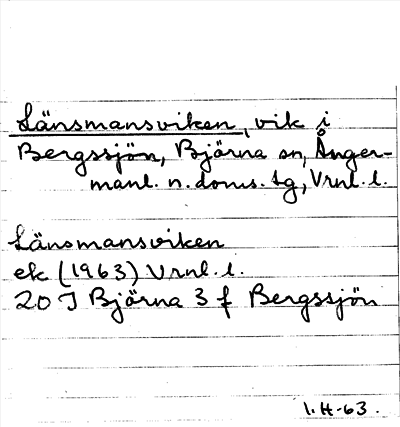 Länsmansviken, vik i
Bergssjön, Björna sn, Ånger-
manl. n. doms. tg, Vrnl. l.
Länsmansviken
ek (1963) Vrnl. l.
20 J Björna 3 f Bergssjön
1. H-63.